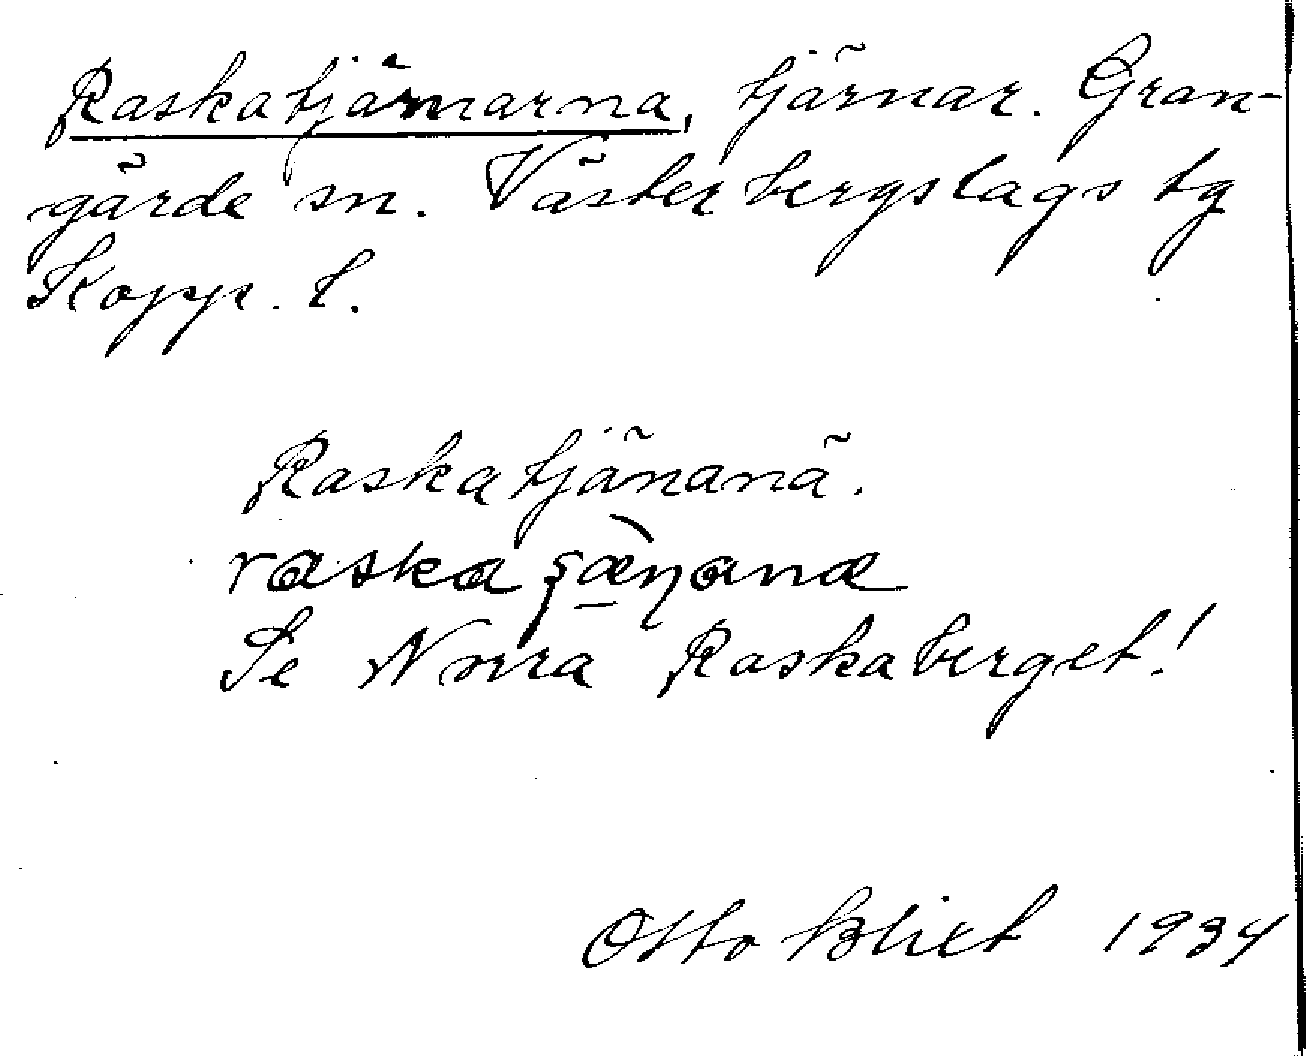 Raskatjärnarna, tjärnar. Gran-
gärde sn. Västerbergslags tg
Kopp. l.
Raskatjänanä.
Se Norra Raskaberget!
Otto Blixt 1934